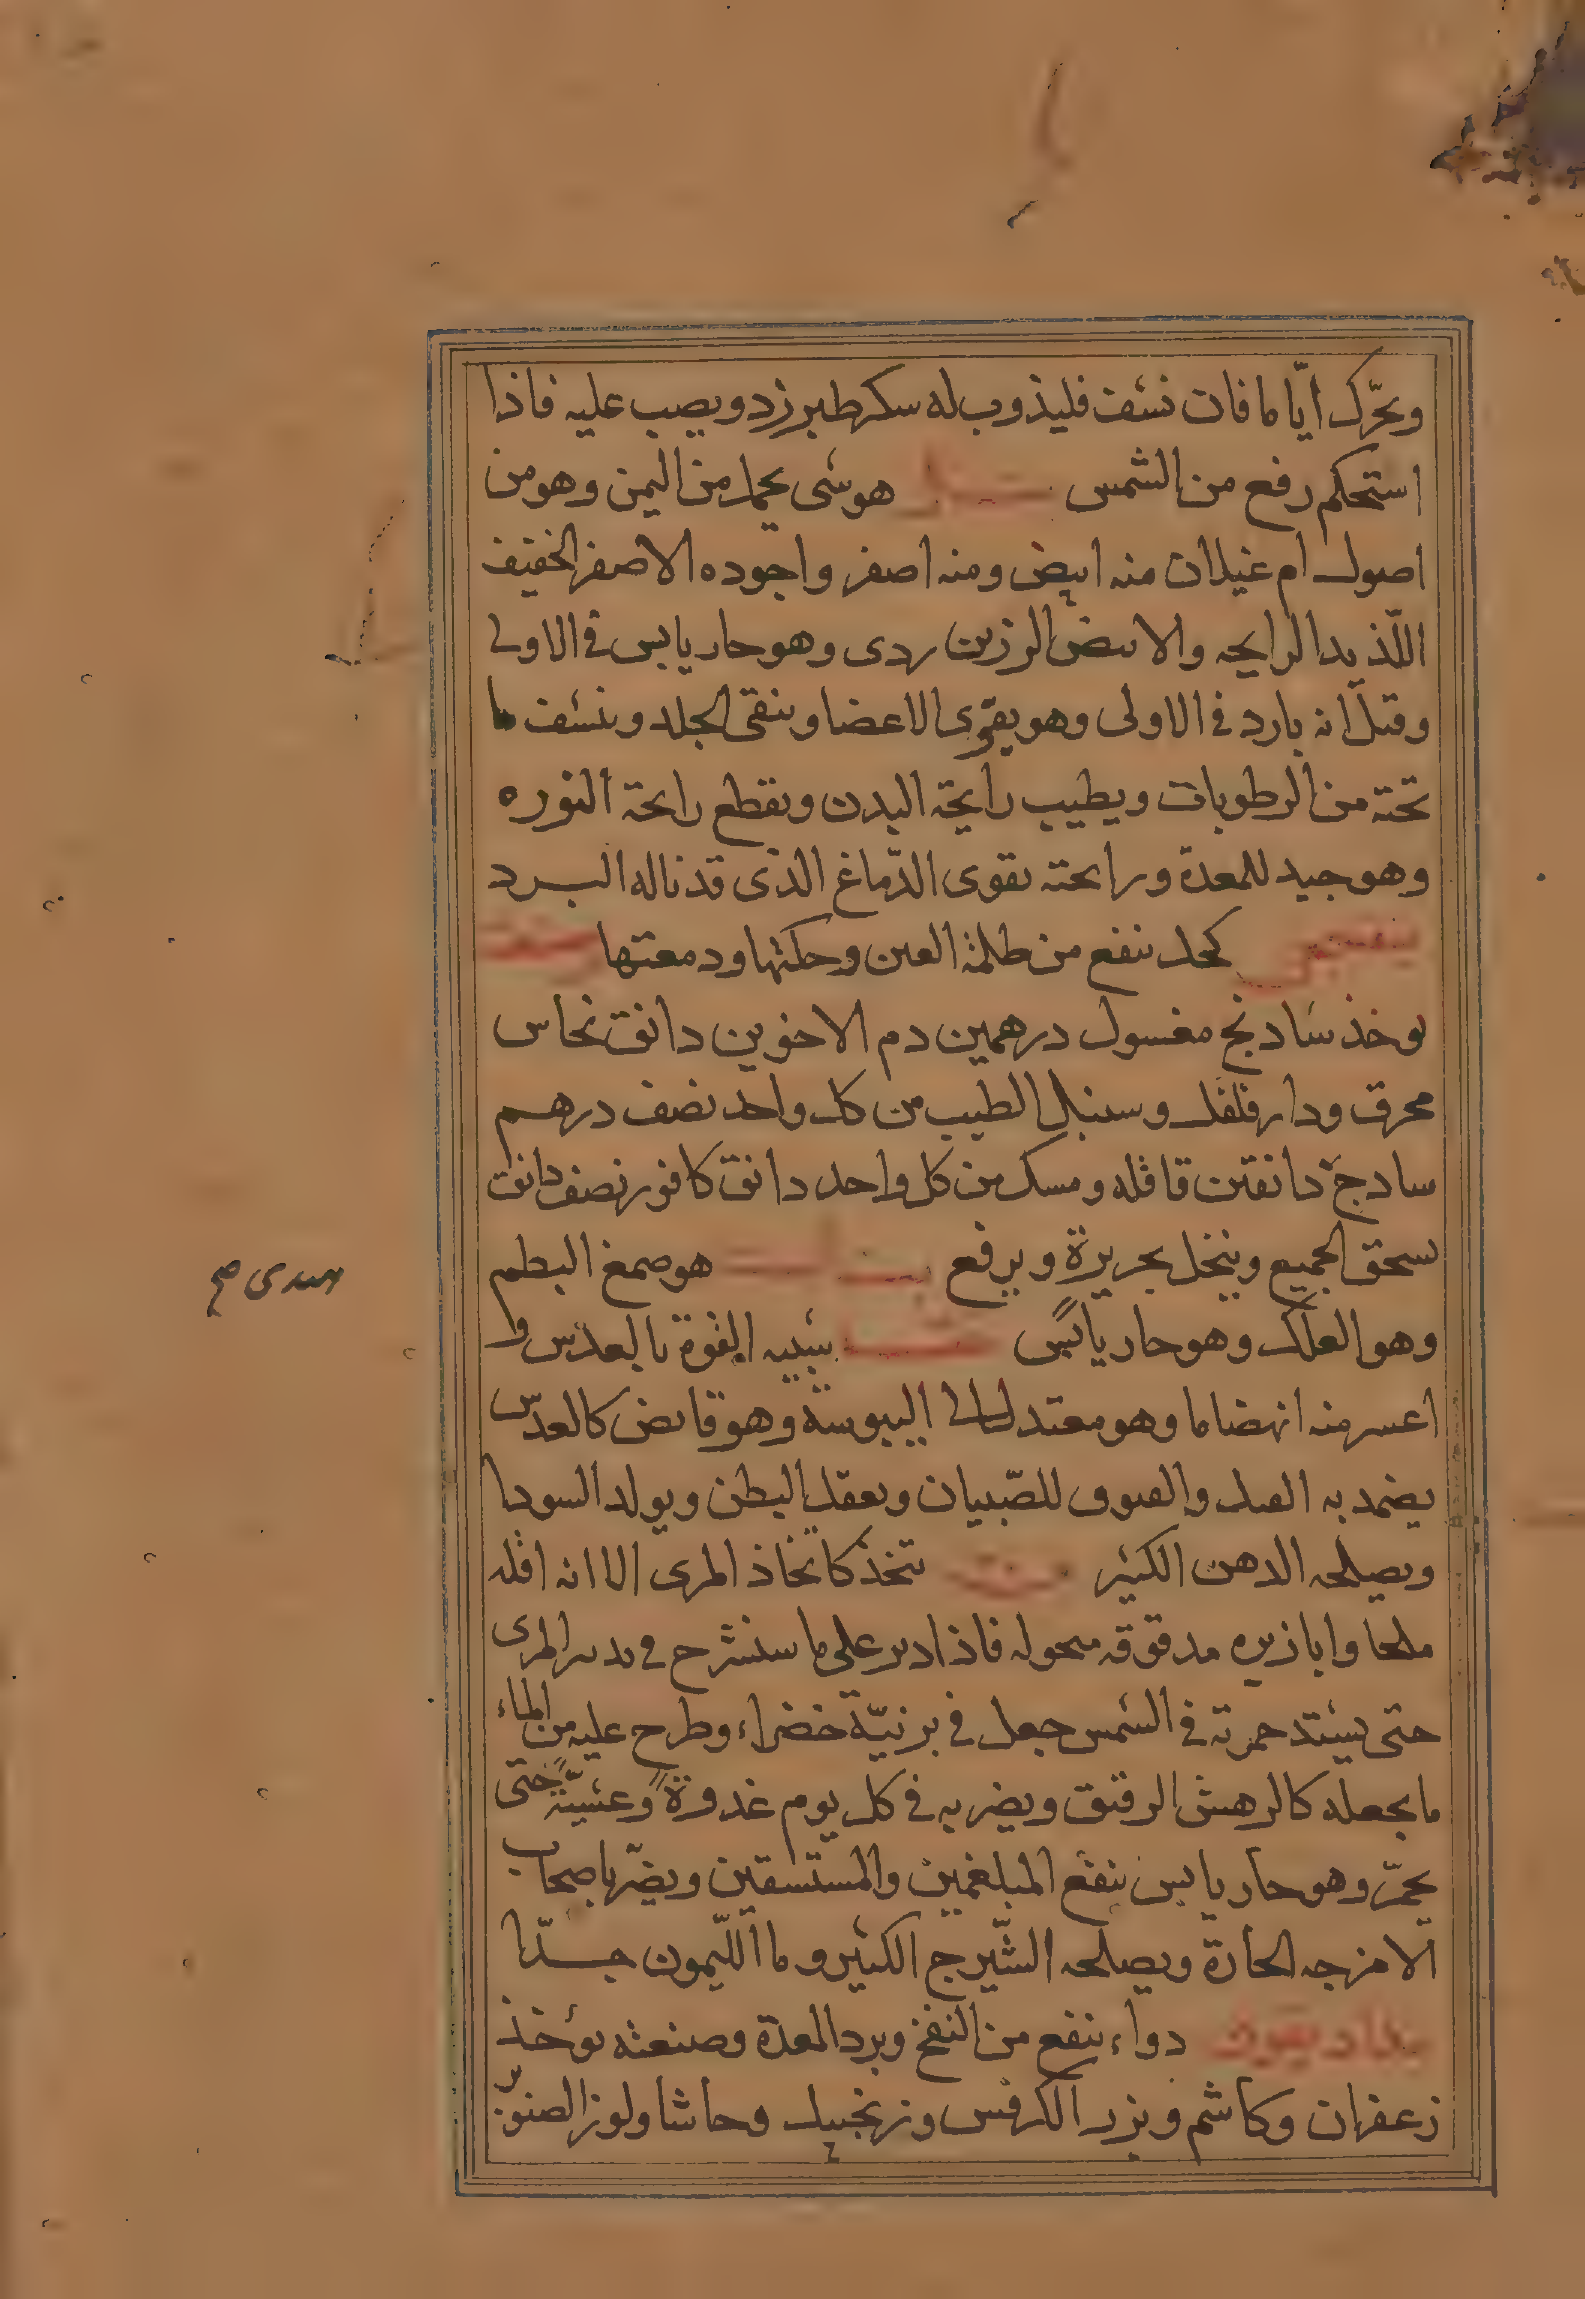 ويحرّك ايّاما فان نشف فليذوب له سكر طبرزد ويصب عليه فاذا
استحكم رفع من الشمس هو شى يحمل من اليمن وهو من
اصول ام غيلان منه ابيض ومنه اصفر واجوده الاصفر الخفيف
اللّذيد الرايحه والابيض الرزين ردى وهو حار يابس فى الاولى
وقيل انه بارد فى الاولى وهو يقوّى الاعضا وينقى الجلد وينشف ما
تحته من الرطوبات ويطيب رايحة البدن ويقطع رايحة النوره
وهو جيد للمعدة ورايحته يقوى الدّماغ الذى قد ناله البرد
كحل ينفع من ظلمة العين وحكتها ودمعتها
يوخذ شادنج مغسول درهمين دم الاخوين دانق نحاس
محرق ودار فلفل وسنبل الطيب من كل واحد نصف درهم
سادج دانقين قاقله ومسك من كل واحد دانق كافور نصف دانق
يسحق الجميع وينخل بحريرة ويرفع هو صمغ البطم
وهو العلك وهو حار يابس شبيه القوة بالعدس و
اعسر منه انهضاما وهو معتدل الى اليبوسة وهو قابض كالعدس
يضمد به الفيل والفتوق للصّبيان ويعقل البطن ويولد السودا
ويصلحه الدهن الكثير يتخذ كاتخاذ المرى الا انه اقله
ملحا وابازيره مدقوقه منحوله فاذا دبر على ما سنشرح فى تدبير المرى
حتى يشتد حمرته فى الشمس جعل فى برنيّة خضراء وطرح عليه من الماء
ما يجعله كالرهش الرقيق ويضربه فى كل يوم غدوةً وعشيّةً حتى
يحمرّ وهو حار يابس ينفع المبلغمين والمستسقين ويضرّ باصحاب
الامزجه الحارة ويصلحه الشّيرج الكثير وما اللّيمون جدّا
دواء ينفع من النفخ وبرد المعدة وصنعته يؤخذ
زعفران وكاشم وبزر الكرفس وزنجبيل وحاشا ولوز الصنوبر